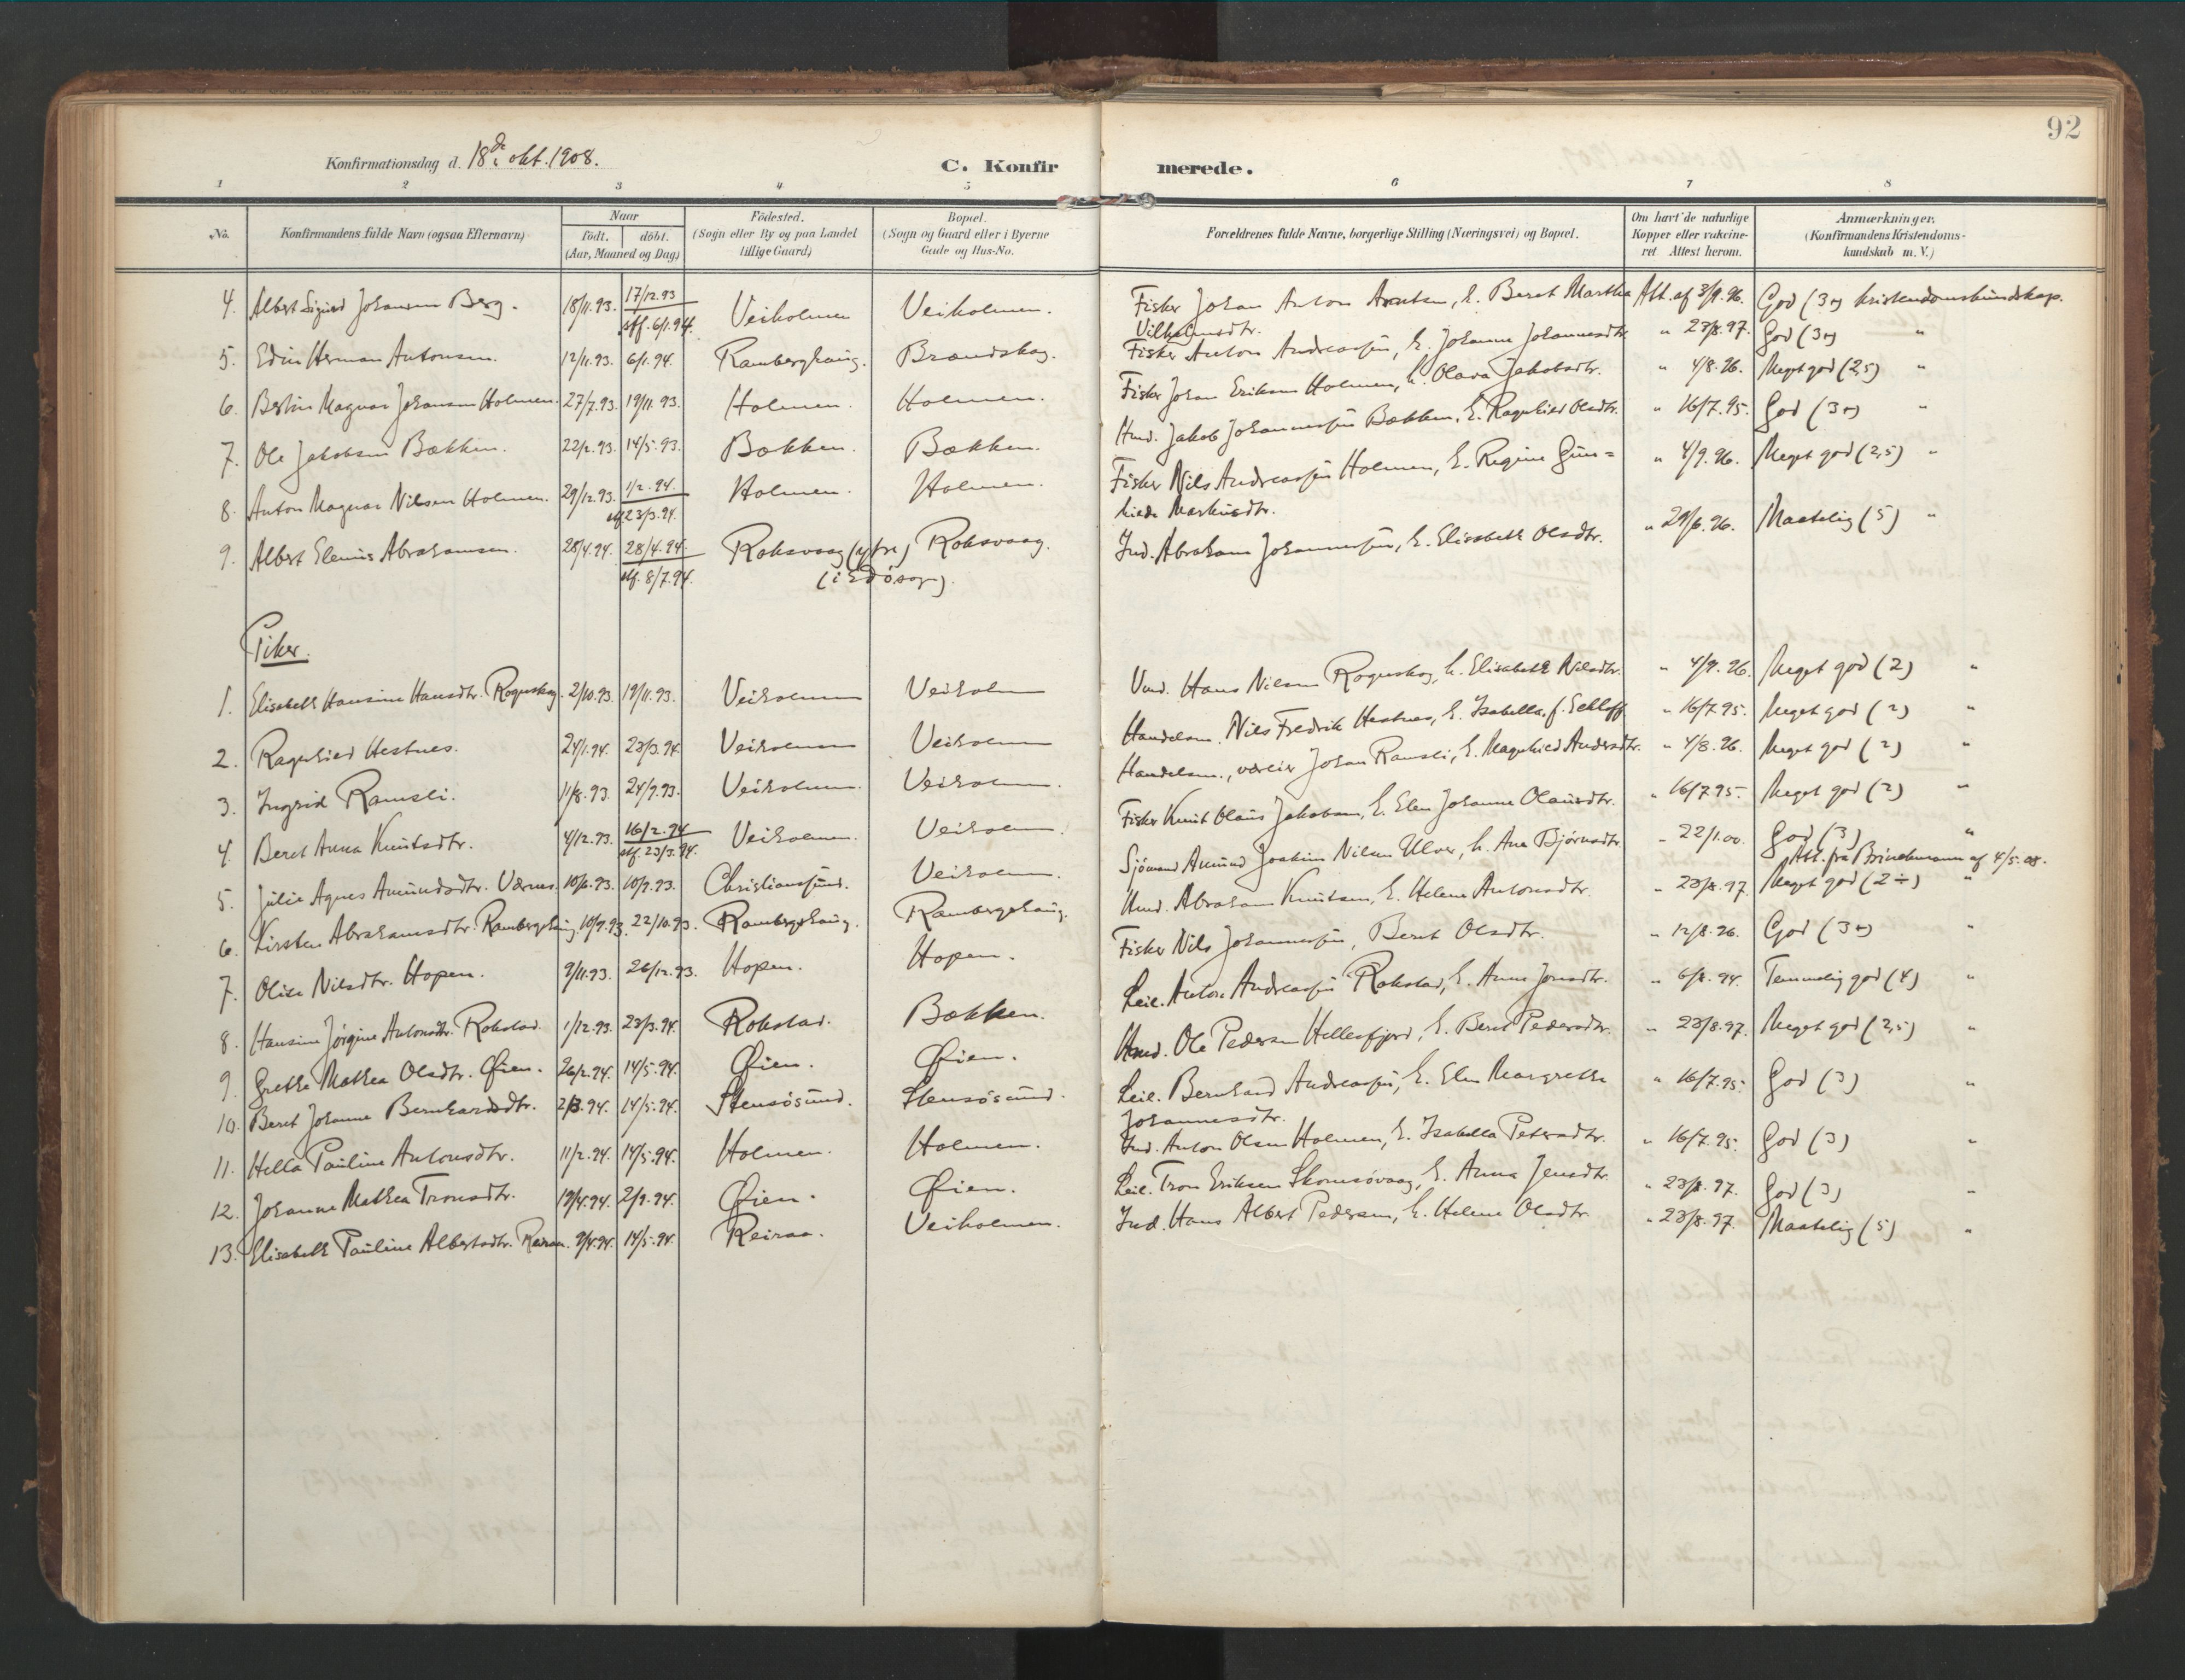 92
Konfirmationsdag d. 18de okt. 1908.
C. Konfirmerede.
1 2 3 4 5 6 7 8
No. Konfirmandens fulde Navn (ogsaa Efternavn) Naar födt. döbt. (Aar, Maaned og Dag) Födested. (Sogn eller By og paa Landet tillige Gaard) Bopæl. (Sogn og Gaard eller i Byerne Gade og Hus-No. Forældrenes fulde Navne, borgerlige Stilling (Næringsvei) og Bopæl. Om havt de naturlige Kopper eller vakcineret Attest herom. Anmærkninger. (Konfirmandens Kristendomskundskab m. V.)
4. Albert Sigurd Johansen Berg. 18/11.93. 17/12.93 stf. 6/1.94. Veiholmen Veiholmen. Fisker Johan Anton Arntsen, h. Beret Martha Vilhelmsdtr. Att. af 3/9.96. God (3+) kristendomskundskap.
5. Edin Herman Antonsen. 12/11.93. 6/1.94. Ramberghaug. Brandskog. Fisker Anton Andreassen, h. Johanna Johannesdtr. " 23/8.97. God (3+) "
6. Bertin Magnar Johansen Holmen. 27/7.93. 19/11.93. Holmen. Holmen. Fisker Johan Eriksen Holmen, h. Olava Jakobsdtr. " 4/8.96. Meget god (2,5) "
7. Ole Jakobsen Bækken. 22/2.93. 14/5.93. Bækken. Bækken. Hmd. Jakob Johannessen Bækken, h. Ragnhild Olsdtr. " 16/7.95. God (3+) "
8. Anton Magnar Nilsen Holmen. 29/12.93. 1/2.94. stf. 23/3.94. Holmen. Holmen. Fisker Nils Andreassen Holmen, h. Regine Gunhilde Markusdtr. " 4/9.96. Meget god (2,5) "
9. Albert Elenius Abrahamsen. 28/4.94. 28/4.94. stf. 8/7.94. Roksvaag (ytre) (i Edö sogn). Roksvaag. Ind. Abraham Johannessen, h. Elisabeth Olsdtr. " 29/6.96. Maatelig (5) "
Piker.
1. Elisabeth Hansine Hansdtr. Rognskog. 2/10.93. 19/11.93. Veiholmen Veiholmen Hans Nilsen Rognskog, h. Elisabeth Nilsdtr. " 4/9.96. Meget god (2) "
2. Ragnhild Hestnes. 24/1.94. 23/3.94. Veiholmen Veiholmen Handelsm. Nils Fredrik Hestnes, h. Isabella f. Eckhoff " 16/7.95. Meget god (2) "
3. Ingrid Ramsli. 11/8.93. 24/9.93. Veiholmen. Veiholmen. Handelsm., væreier Johan Ramsli, h. Magnhild Andersdtr. " 4/8.96. Meget god (2) "
4. Beret Anna Knutsdtr. 4/12.93. 16/2.94 stf. 23/3.94. Veiholmen. Veiholmen. Fisker Knut Olaus Jakobsen, h. Elen Johanna Olausdtr. " 16/7.95. Meget god (2) "
5. Julie Agnes Amundsdtr. Værnes. 10/6.93. 10/9.93. Christianssund. Veiholmen. Sjömand Amund Joakim Nilsen Ulven, h. Ane Bjørnsdtr. " 22/1.00. God (3) " Att. fra Brinchmann af 4/5.08.
6. Kirsten Abrahamsdtr. Ramberghaug. 10/9.93. 22/10.93. Ramberghaug. Ramberghaug. Hmd. Abraham Knutsen, h. Helene Antonsdtr. " 23/8.97. Meget god (2÷) "
7. Olise Nilsdtr. Hopen. 9/11.93. 26/12.93. Hopen. Hopen. Fisker Nils Johannessen, Beret Olsdtr. " 12/8.96. God (3+) "
8. Hansine Jörgine Antonsdtr. Rokstad. 1/12.93. 23/3.94. Rokstad. Bækken. Leil. Anton Andreassen Rokstad, h. Anne Jonsdtr. " 6/8.94. Temmelig god (4) "
9. Grethe Mathea Olsdtr. Øien. 26/2.94. 14/5.94. Øien. Øien. Hmd. Ole Pedersen Hellesfjord, h. Beret Pedersdtr. " 23/8.97. Meget god (2,5) "
10. Beret Johanne Bernhardsdtr. 2/3.94. 14/5.94. Stensösund. Stensösund. Leil. Bernhard Andreassen, h. Elen Margrethe Johannesdtr. " 16/7.95. God (3) "
11. Hella Pauline Antonsdtr. 11/2.94. 14/5.94. Holmen. Holmen. Ind. Anton Olsen Holmen, h. Isabella Petersdtr. " 16/7.95. God (3) "
12. Johanne Mathea Tronsdtr. 19/4.94. 2/9.94. Øien. Øien. Leil. Tron Eriksen Skomsövaag, h. Anna Jensdtr. " 23/8.97. God (3) "
13. Elisabeth Pauline Albertsdtr. Reiraa. 9/4.94. 14/5.94. Reiraa. Veiholmen. Ind. Hans Albert Pedersen, h. Helene Olsdtr. " 23/8.97. Maatelig (5) "